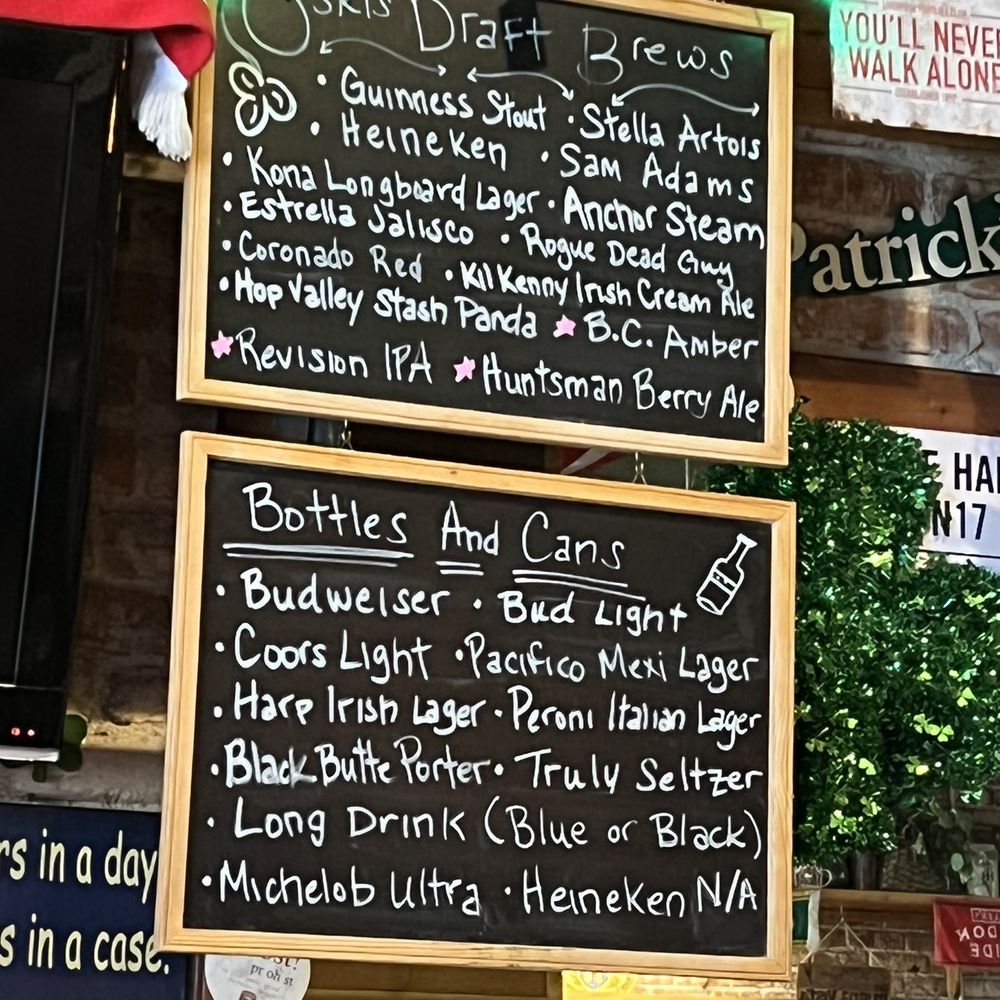 Oskis Draft Brews
• Guinness Stout • Stella Artois
• Heineken • Sam Adams
• Kona Longboard Lager • Anchor Steam
• Estrella Jalisco • Rogue Dead Guy
• Coronado Red • Kilkenny Irish Cream Ale
• Hop Valley Stash Panda ★ B.C. Amber
★ Revision IPA ★ Huntsman Berry Ale
Bottles And Cans
• Budweiser • Bud Light
• Coors Light • Pacifico Mexi Lager
• Harp Irish Lager • Peroni Italian Lager
• Black Butte Porter • Truly Seltzer
• Long Drink (Blue or Black)
• Michelob Ultra • Heineken N/A
YOU'LL NEVER
WALK ALONE
Patrick
HA
N17
rs in a day
s in a case.